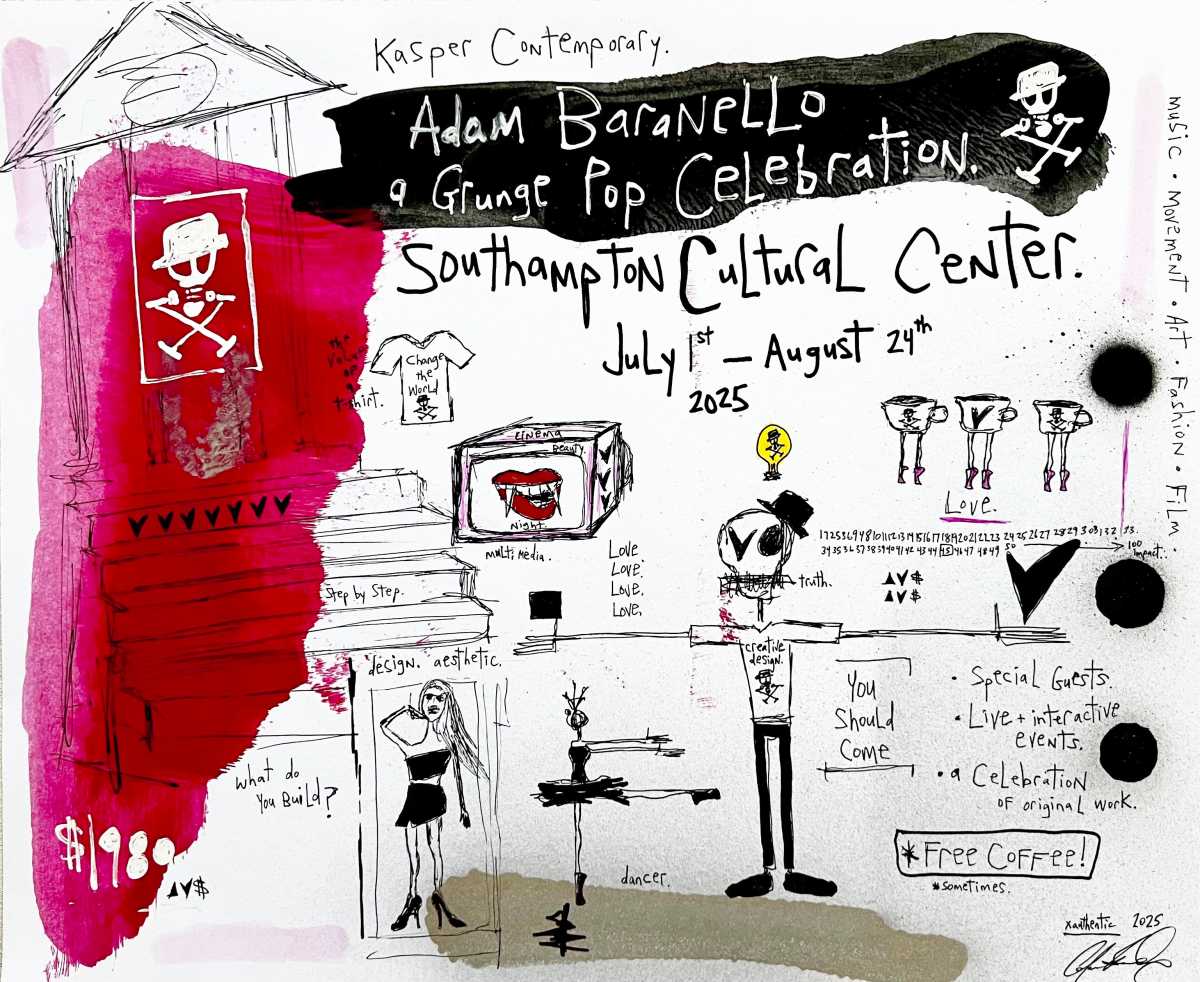 Kasper Contemporary.
Adam Baranello
a Grunge Pop Celebration.
Southampton Cultural Center.
July 1st – August 24th
2025
music • movement • Art • Fashion • Film
the
value
of a
t-shirt.
Change
the
World
CINEMA
Beauty.
Night.
multi, media.
Love.
Love.
Love.
Love.
Love.
truth.
100
impact.
Step by Step.
design. aesthetic.
creative
design.
You
Should
Come
• Special Guests.
• Live + interactive
events.
• a Celebration
of original work.
*Free Coffee!
*sometimes.
what do
you Build?
$1989
dancer.
xanthentic 2025